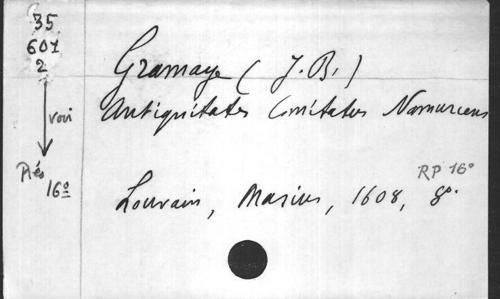 35
601
2
voir
Rés
16º
Gramaye (J.B.)
Antiquitates Comitatus Namurcens
RP 16º
Louvain, Masius, 1608, 8º.